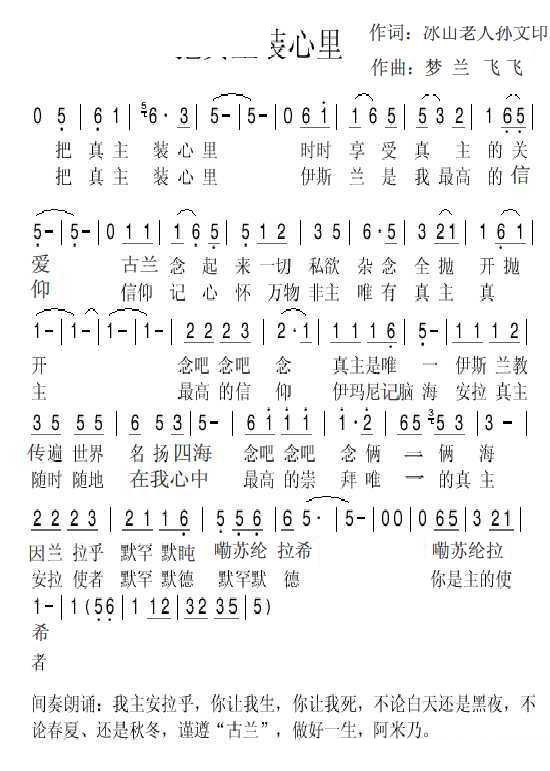 装心里
作词：冰山老人孙文印
作曲：梦 兰 飞飞
0 5 | 6 1 | 5 6· 3 | 5- | 5- | 0 6 i | 1 6 5 | 5 3 2 | 1 6 5 |
把 真主 装心里 时时 享 受 真 主 的 关
把 真主 装心里 伊斯 兰 是 我 最高 的 信
5- | 5- | 0 1 1 | 1 6 5 | 5 1 2 | 3 5 | 6·5 | 3 2 | 1 6 1 |
爱 古兰 念 起 来 一切 私欲 杂 念 全 抛 开 抛
仰 信仰 记 心 怀 万物 非主 唯 有 真 主 真
1- | 1- | 1- | 1- | 2 2 2 3 | 2·1 | 1 1 1 6 | 5- | 2 2 2 2 |
开 念吧 念吧 念 真主是唯 一 伊斯 兰教
主 最高 的信 仰 伊玛尼记脑 海 安拉 真主
3 5 5 5 | 6 5 3 | 5- | 6 i i i | 1·2 | 6 5 3 5 3 | 3- |
传遍 世界 名 扬 四海 念吧 念吧 念 俩 一 俩 海
随时 随地 在我心中 最高 的崇 拜 唯 一 的真 主
2 2 2 3 | 2 1 1 6 | 5 5 6 | 6 5· | 5- | 0 0 | 0 6 5 | 3 2 1 |
因兰 拉乎 默罕 默盹 嘞苏纶 拉希 嘞苏纶拉
安拉 使者 默罕 默德 默罕默 德 你是 主的 使
1- | 1 ( 5 6 | 1 1 2 | 3 2 3 5 | 5 )
希
者
间奏朗诵：我主安拉乎，你让我生，你让我死，不论白天还是黑夜，不
论春夏、还是秋冬，谨遵“古兰”，做好一生，阿米乃。